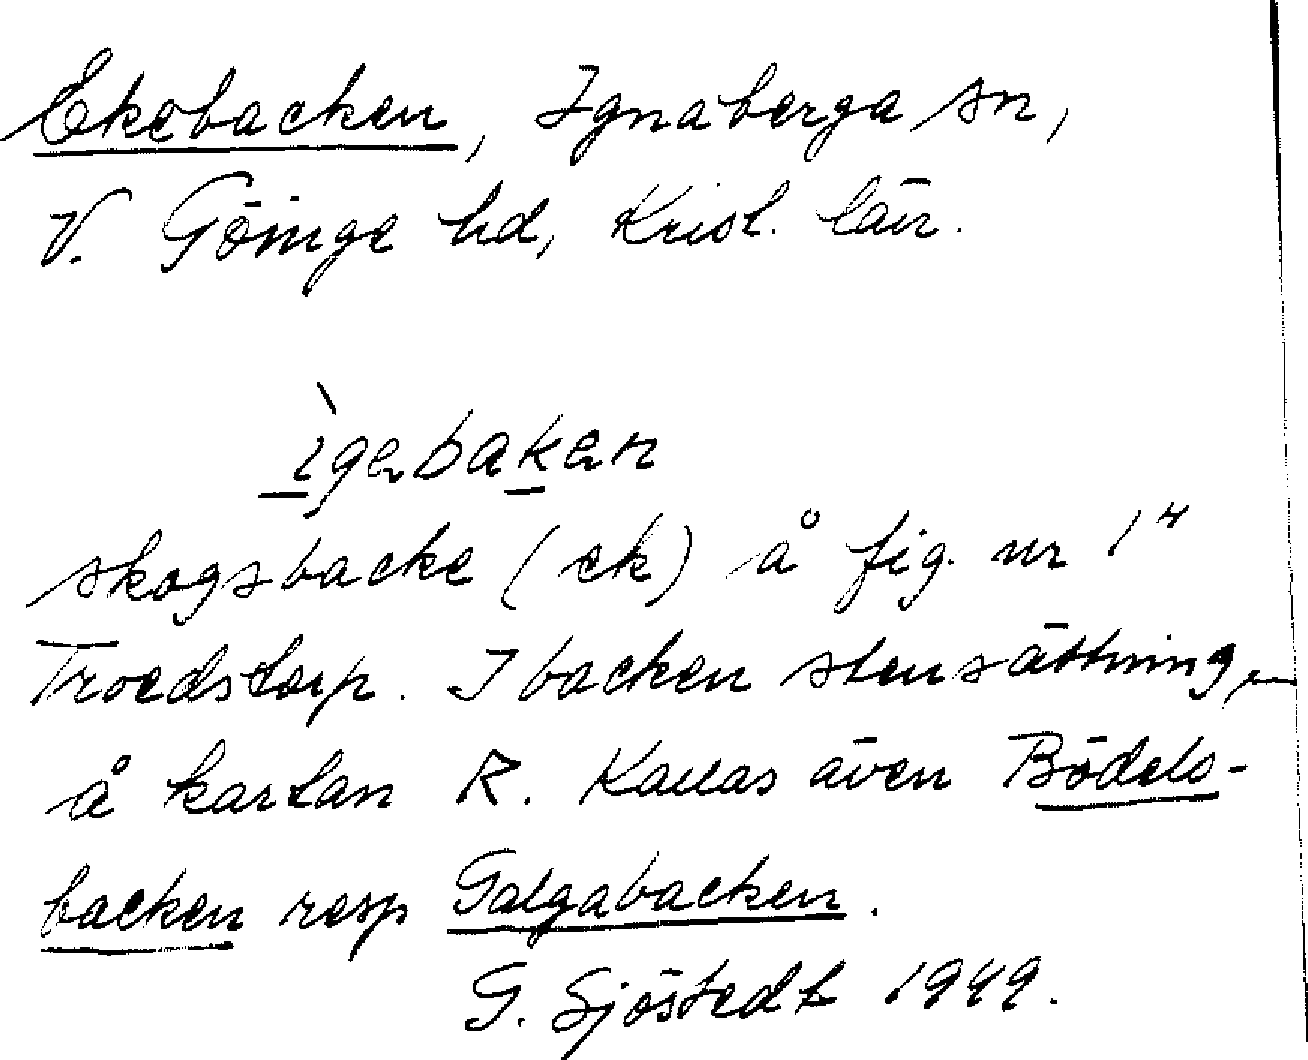 Ekebacken, Ignaberga sn,
V. Göinge hd, Krist. län.
ìgebaken
skogsbacke (ek) å fig. nr 1⁴
Troedstorp. I backen stensättning,
å kartan R. Kallas även Bödels-
backen resp Galgabacken.
G. Sjöstedt 1949.